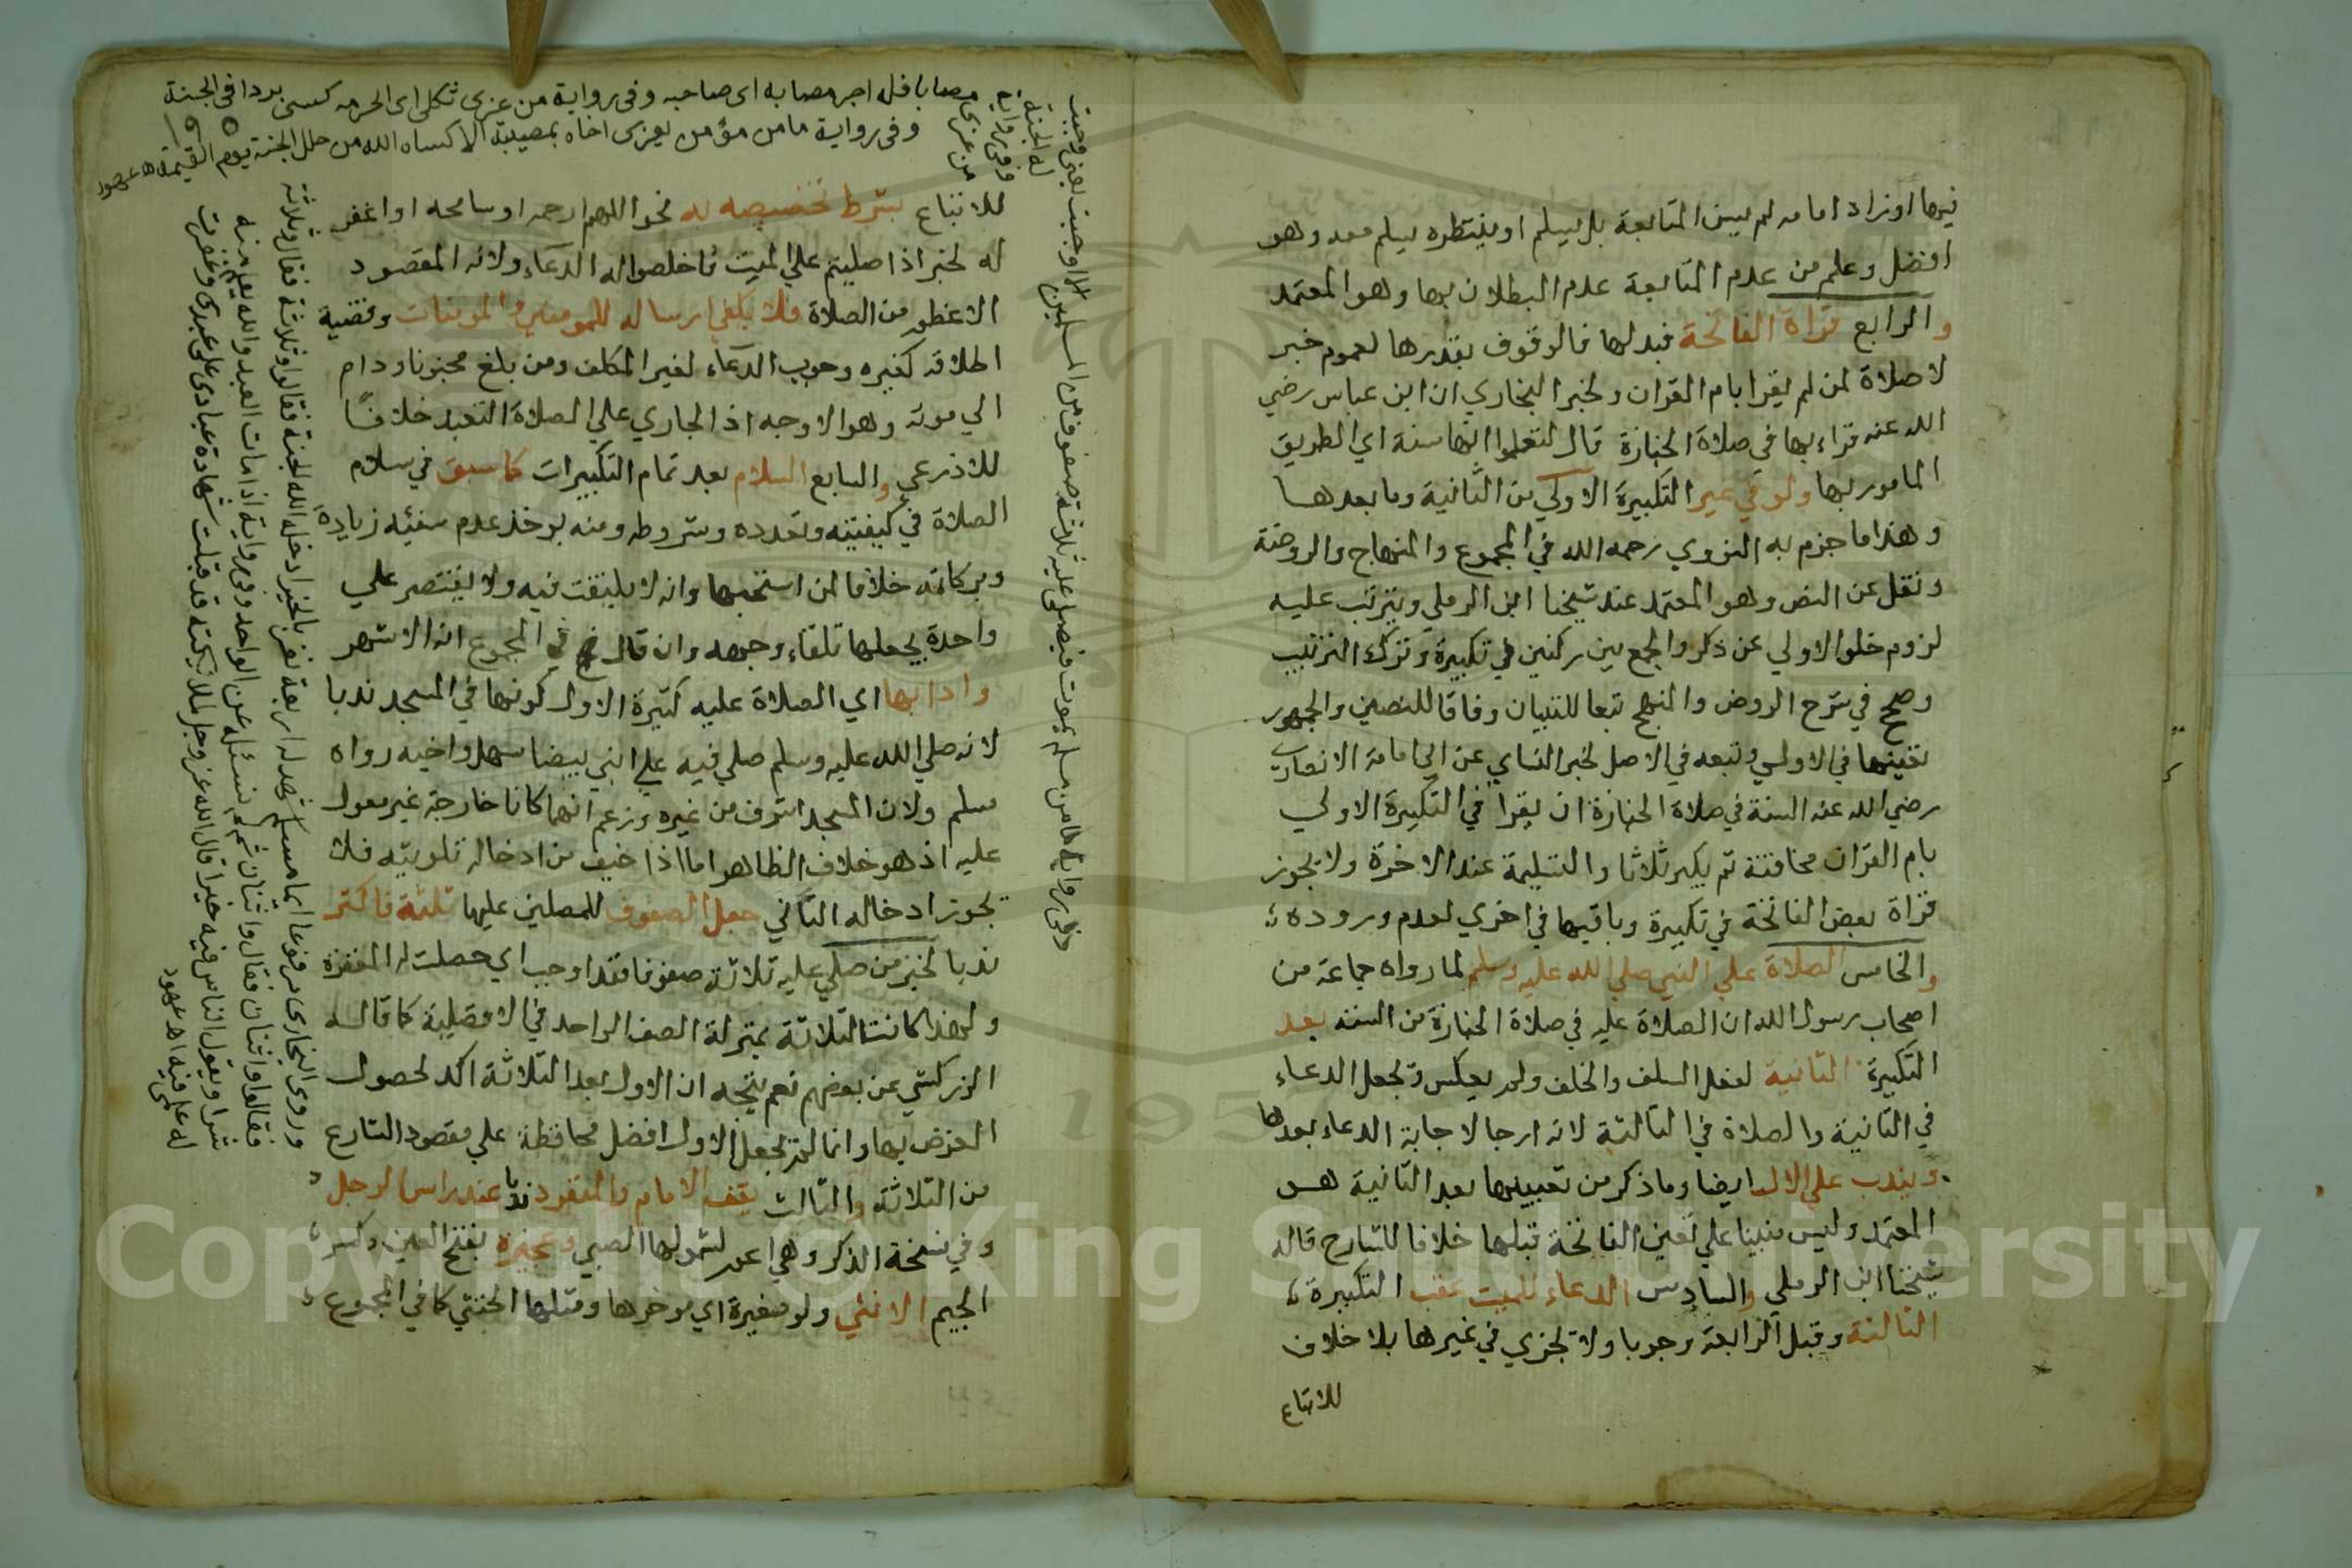 فيها او زاد امامه لم يسن المتابعة بل يسلم او ينتظره يسلم معه وهو
افضل وعلم من عدم المتابعة عدم البطلان بها وهو المعتمد
والرابع قراة الفاتحة فبدلها فالوقوف بقدرها لعموم خبر
لا صلاة لمن لم يقرا بام القران ولخبر البخاري ان ابن عباس رضي
الله عنه قراء بها في صلاة الجنازة قال لتعلموا انها سنة اي الطريق
المامور بها ولو في غير التكبيرة الاولي من الثانية وما بعدها
وهذا ما جزم به النووي رحمه الله في المجموع والمنهاج والروضة
ونقل عن النص وهو المعتمد عند شيخنا ابن الرملي ويترتب عليه
لزوم خلو الاولي عن ذكر والجمع بين ركنين في تكبيرة وترك الترتيب
وصحح في شرح الروض والمنهج تبعا للتبيان وفاقا للنصين والجمهور
تعينها في الاولي وتبعه في الاصل لخبر النساي عن ابي امامة الانصاري
رضي الله عنه السنة في صلاة الجنازة ان يقرا في التكبيرة الاولي
بام القران مخافتة ثم يكبر ثلاثا والتسليمة عند الاخرة ولا يجوز
قراة بعض الفاتحة في تكبيرة وباقيها في اخري لعدم وروده
والخامس الصلاة علي النبي صلي الله عليه وسلم لما رواه جماعة من
اصحاب رسول الله ان الصلاة عليه في صلاة الجنازة من السنة بعد
التكبيرة الثانية لفعل السلف والخلف ولم يعكس وتجعل الدعاء
في الثانية والصلاة في الثالثة لانه ارجا لاجابة الدعاء بعدها
ويندب علي الال ايضا وما ذكر من تعيينها بعد الثانية هو
المعتمد وليس مبنيا علي تعين الفاتحة قبلها خلافا للشارح قاله
شيخنا ابن الرملي والسادس الدعاء للميت عقب التكبيرة
الثالثة وقبل الرابعة وجوبا ولا تجزي في غيرها بلا خلاف
للاتباع
مصابا فله اجر مصابه اى صاحبه وفى رواية من عزى ثكلى اى الحرمه كسى بردا فى الجنة
وفى رواية ما من مؤمن يعزى اخاه بمصيبة الا كساه الله من حلل الجنة يوم القيمة
للاتباع بشرط تخصيصه له نحو اللهم ارحمه او سامحه او اغفر
له لخبر اذا صليتم علي الميت فاخلصوا له الدعاء ولانه المقصود
الاعظم من الصلاة فلا يكفي ارساله للمومنين والمومنات وقضية
اطلاقه كغيره وجوب الدعاء لغير المكلف ومن بلغ مجنونا ودام
الي موته وهو الاوجه اذ الجاري علي الصلاة التعبد خلافا
للاذرعي والسابع السلام بعد تمام التكبيرات كما سبق في سلام
الصلاة في كيفيته وتعدده وشروطه ومنه يوخذ عدم سنيه زيادة
وبركاته خلافا لمن استحبها وانه لا يلتفت فيه ولا يقتصر علي
واحدة يجعلها تلقاء وجهه وان قال في المجموع انه الاشهر
وادابها اي الصلاة عليه كثيرة الاول كونها في المسجد ندبا
لانه صلي الله عليه وسلم صلي فيه علي ابني بيضا سهل واخيه رواه
مسلم ولان المسجد اشرف من غيره وزعم انهما كانا خارجة غير معول
عليه اذ هو خلاف الظاهر اما اذا خيف من ادخاله تلويثه فلا
يجوز ادخاله الثاني جعل الصفوف للمصلين عليها ثلثة فاكثر
ندبا لخبر من صلي عليه ثلاثة صفوف فقد اوجب اي حصلت له المغفرة
ولهذا كانت الثلاثة بمنزلة الصف الواحد في الافضلية كما قاله
الزركشي عن بعضهم نعم يتجه ان الاول بعد الثلاثة اكد لحصول
الغرض بها وانما لم تجعل الاول افضل محافظة علي مقصود الشارع
من الثلاثة والثالث يقف الامام والمنفرد ندبا عند راس الرجل
وفي نسخة الذكر وهي اعم لشمولها الصبي وعجيزة بفتح العين وكسر
الجيم الانثي ولو صغيرة اي موخرها ومثلها الخنثي كما في المجموع
وفى رواية ما من مسلم يموت فيصلى عليه ثلاثة صفوف من المسلمين الا اوجبت اوجبت يعنى وجبت
له الجنة
وفى رواية
من عزى
وروى البخارى مرفوعا ايما مسلم شهد له اربعة نفر بالخير ادخله الله الجنة فقالوا وثلاثة فقال وثلاثه
فقالوا واثنان فقال واثنان ثم لم نسئله عن الواحد وفى رواية اذا مات العبد والله يعلم منه
شرا ويقول الناس فيه خيرا قال الله عز وجل لملائكته قد قبلت شهادة عبادى على عبدى وغفرت
له علمى فيه اهـ عهود
Copyright © King Saud University
195